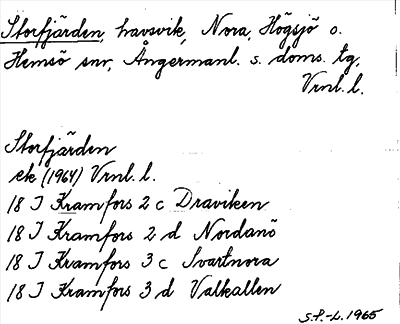 Storfjärden, havsvik, Nora, Högsjö o.
Hemsö snr, Ångermanl. s. doms. tg,
Vrnl. l.
Storfjärden
ek (1964) Vrnl. l.
18 I Kramfors 2 c Draviken
18 I Kramfors 2 d Nordanö
18 I Kramfors 3 c Svartnora
18 I Kramfors 3 d Valkallen
S.F.-L. 1965